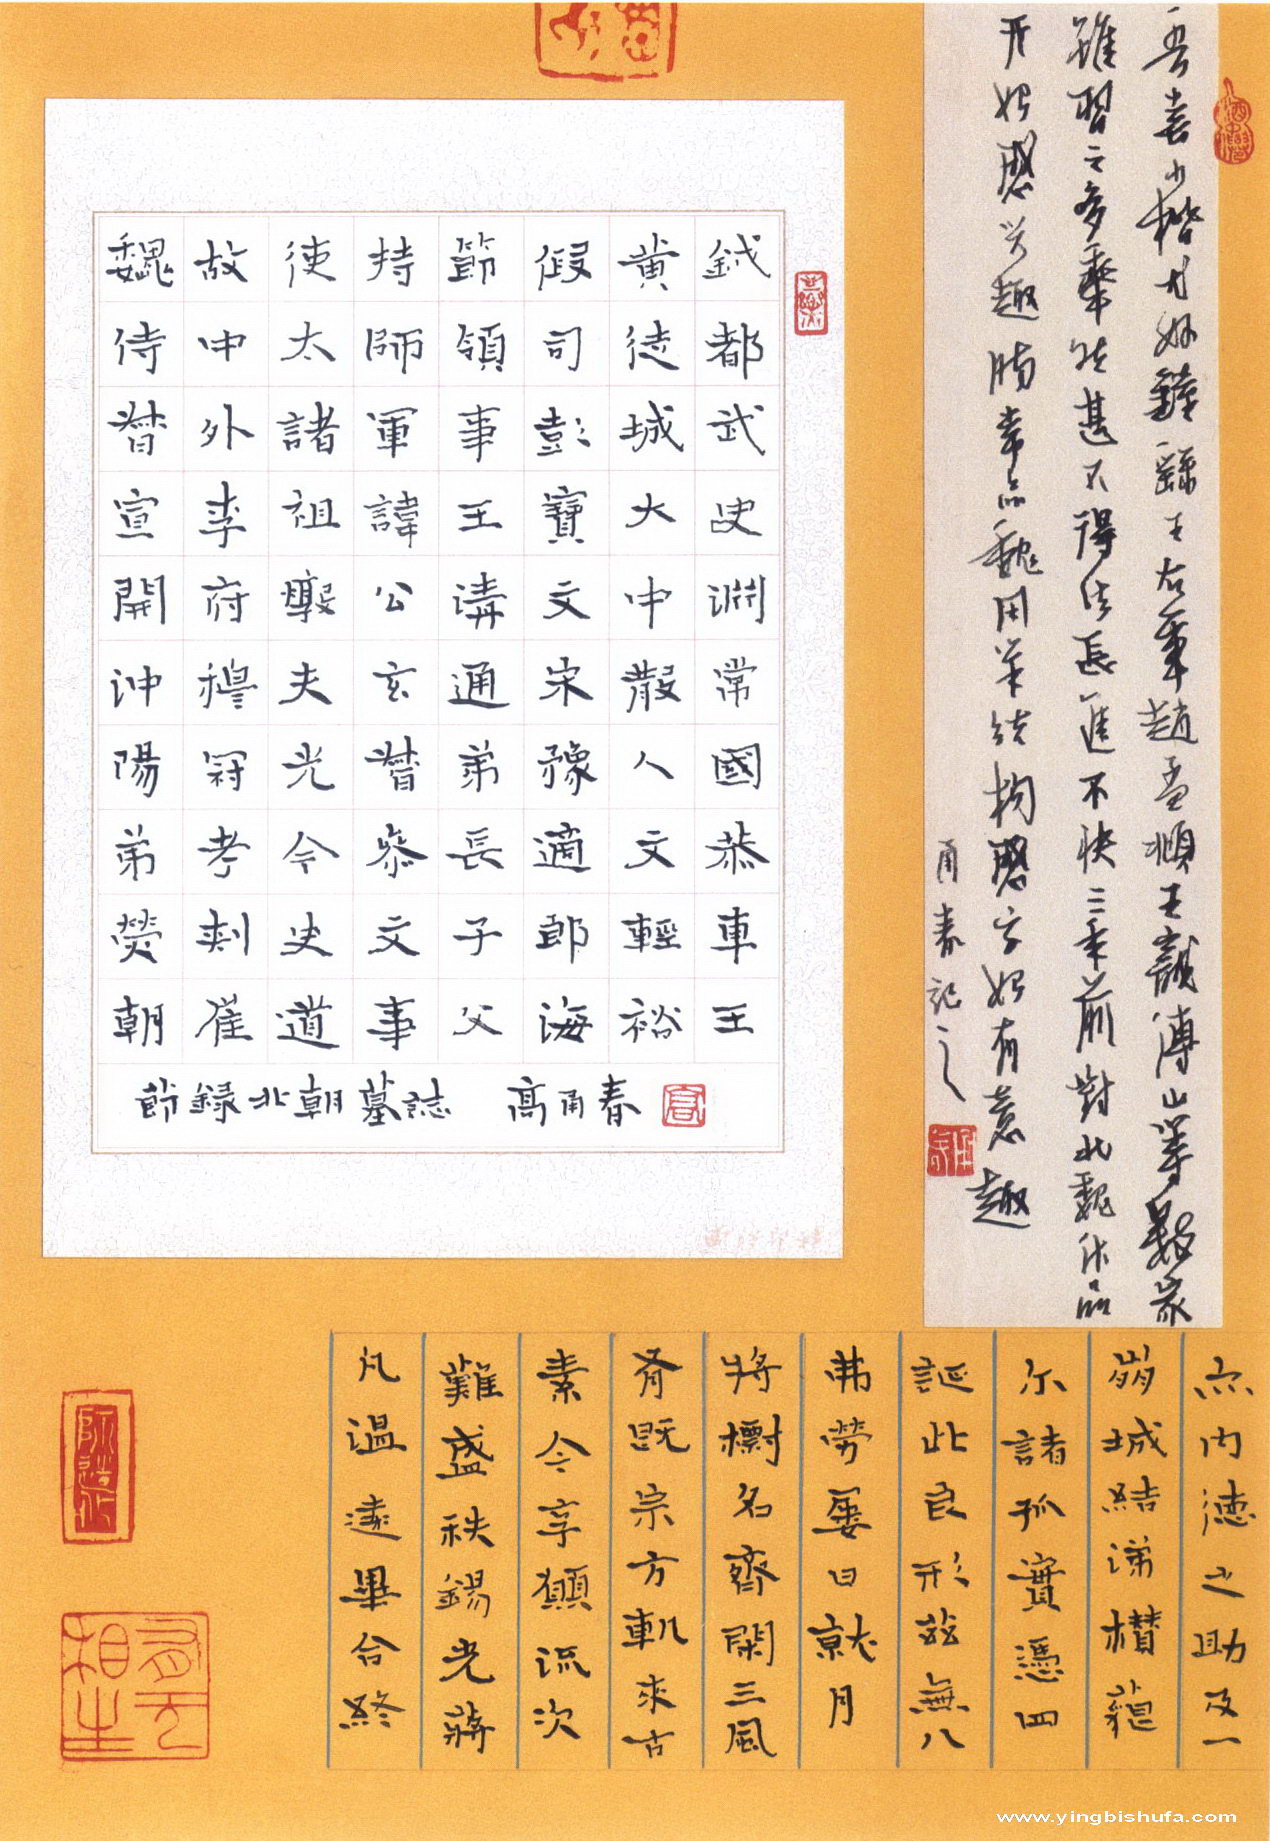 魏故使持節假黄鉞
侍中太師領司徒都
督外諸軍事彭城武
宣李祖諱王寶大史
開府毅公溝文中淵
沖穆夫玄通宋散常
陽冠光督弟豫人國
弟考今恭長適文恭
熒刺史文子郎輕車
朝崔道事父海裕王
節録北朝墓誌 高甬春
吾喜小楷尤好鍾繇王右軍趙孟頫王寵傅山等數家
雖習之多年然甚不得法長進不快二年前對北魏作品
开始感兴趣章品魏用筆結構始有意趣
甬春記之
内德之助及一
崩城結涕櫕
尓諸孤實憑四
誕此良形兹無八
弗勞屢日就月
將樹名齊閑三風
既宗方軌來古
素令享願流次
難盛秩錫光蔣
凡温遠畢合終
www.yingbishufa.com